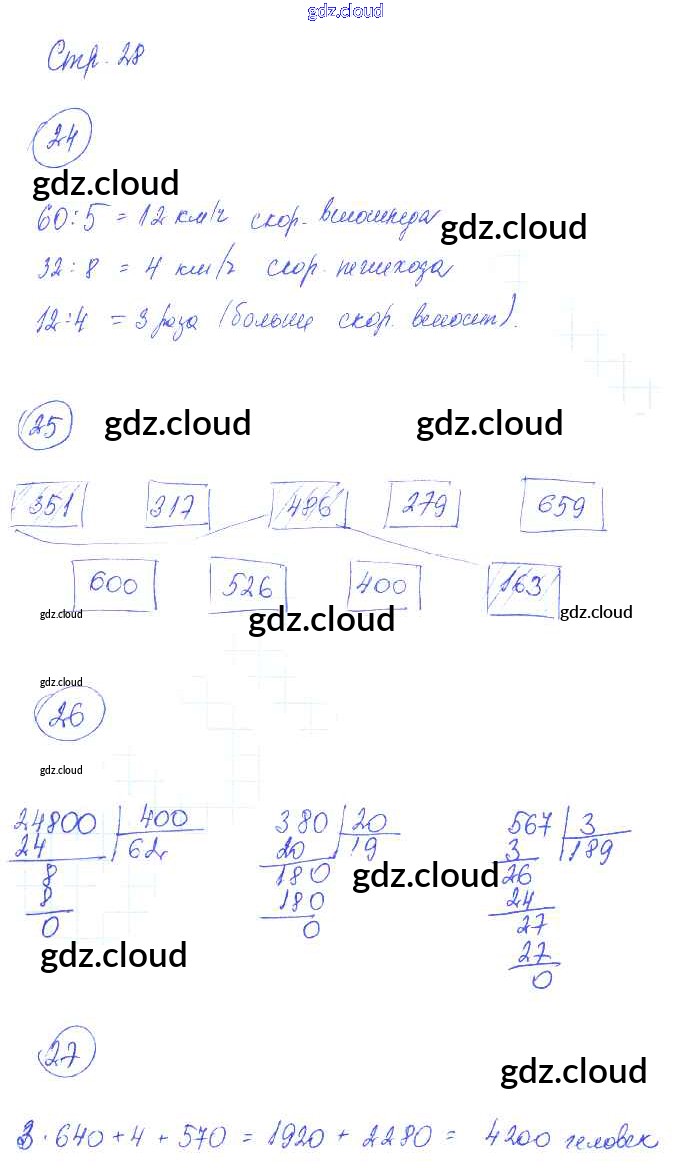 gdz.cloud
Стр. 28
24
gdz.cloud
60:5 = 12 км/ч скор. велосипеда
gdz.cloud
32:8 = 4 км/ч скор. пешехода
12:4 = 3 раза (больше скор. велосип).
25 gdz.cloud gdz.cloud
351 317 486 279 659
600 526 400 163
gdz.cloud gdz.cloud gdz.cloud
gdz.cloud
26
gdz.cloud
24800 400 380 20 567 3
24 62 20 19 3 189
8 180 26
gdz.cloud
8 180 24
0 0 27
gdz.cloud
27
0
27
gdz.cloud
3·640+4+570 = 1920 + 2280 = 4200 человек